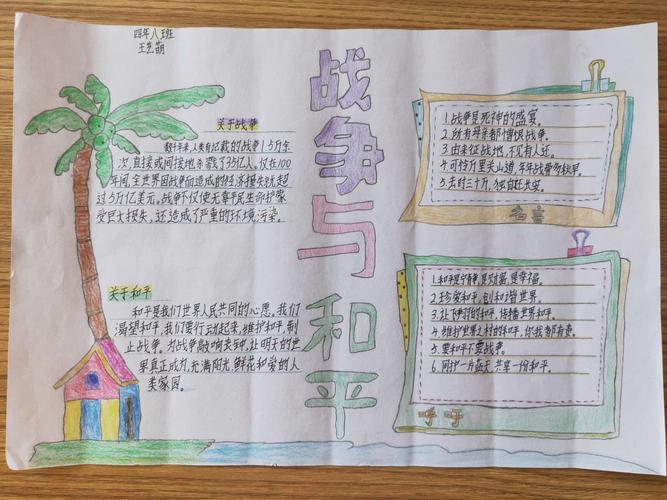 四年八班
王艺萌
战争与和平
关于战争
数千年来,人类有记载的战争1.5万余
次,直接或间接地杀戮了35亿人。仅在100
年间,全世界因战争而造成的经济损失就超
过5万亿美元。战争不仅使无辜平民生命财产蒙
受巨大损失,还造成了严重的环境污染。
关于和平
和平是我们世界人民共同的心愿。我们
渴望和平,我们要行动起来,维护和平,制
止战争。为战争敲响丧钟,让明天的世
界真正成为充满阳光、鲜花和爱的人
类家园。
1.战争是死神的盛宴。
2.所有母亲都憎恨战争。
3.由来征战地,不见有人还。
4.可怜万里关山道,年年战骨多秋草。
5.去时三十万,独自还长安。
名言
1.和平是宁静,是财富,是幸福。
2.珍爱和平,创和谐世界。
3.让飞翔的和平,传播世界和平。
4.维护世界之村的和平,你我都有责。
5.要和平不要战争。
6.同护一片蓝天,共享一份和平。
呼吁